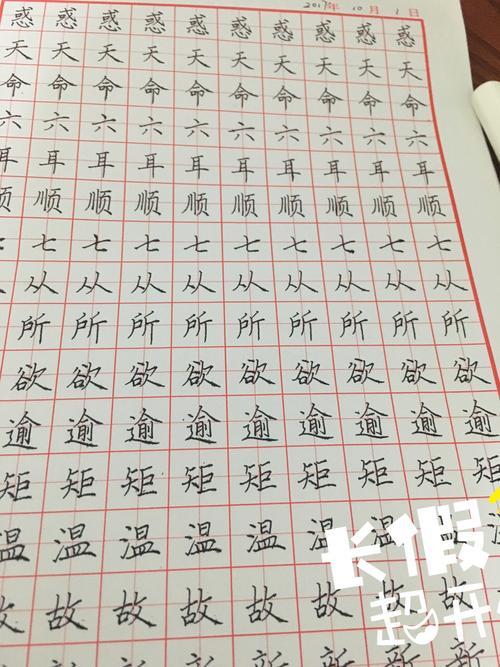 2017年 10月 1日
惑惑惑惑惑惑惑惑惑惑
天天天天天天天天天天
命命命命命命命命命命
六六六六六六六六六六
耳耳耳耳耳耳耳耳耳耳
顺顺顺顺顺顺顺顺顺顺
七七七七七七七七七
从从从从从从从从从
所所所所所所所所所
欲欲欲欲欲欲欲欲欲
逾逾逾逾逾逾逾逾逾
矩矩矩矩矩矩矩矩矩
温温温温温温温温
故故故故故故故故
新新新新新
长假
超升